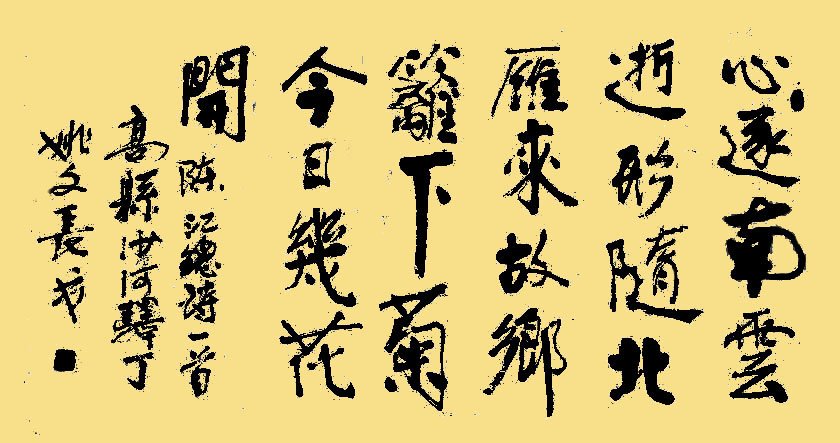 心逐南雲
逝形隨北
雁來故鄉
籬下菊
今日幾花
開
陈江總詩一首
高縣沙河驛丁
姚文長书